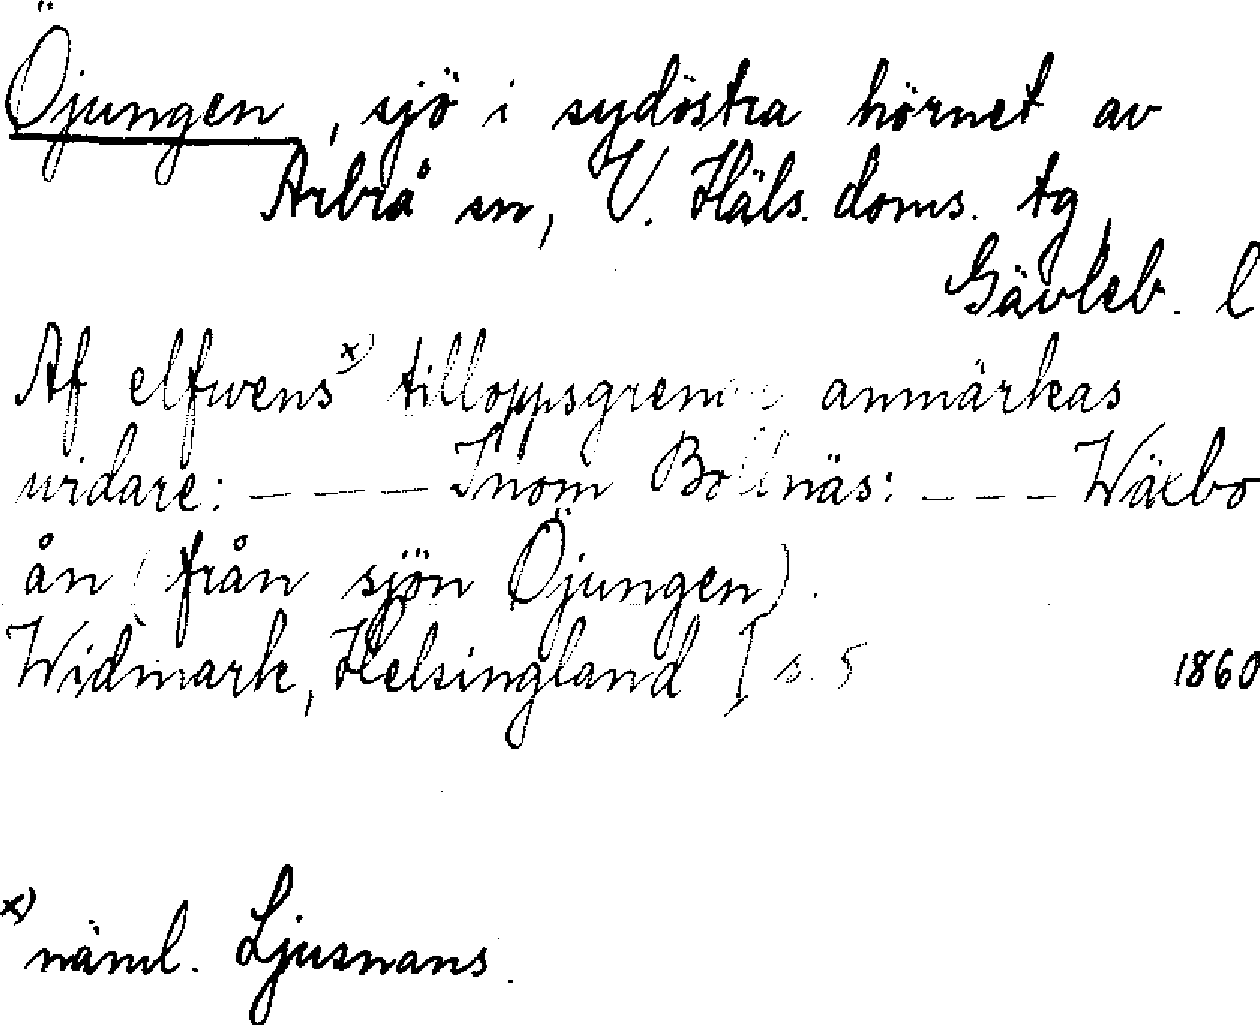 Öjungen, sjö i sydöstra hörnet av
Arbrå sn, V. Häls. doms. tg,
Gävleb. l
Af elfwens x) tilloppsgrenar anmärkas
widare: – – – – Inom Bollnäs: – – – Wäxbo
ån (från sjön Öjungen).
Widmark, Helsingland I, s. 5 1860
x) näml. Ljusnans.